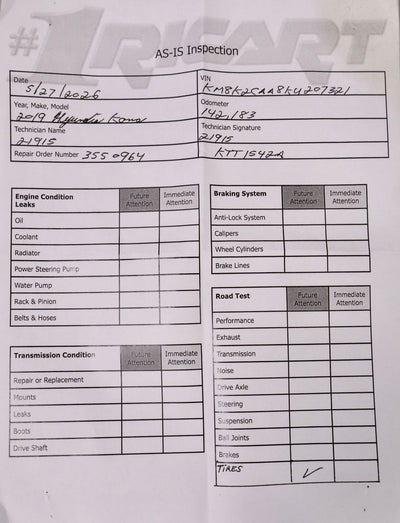 #1 RICART
AS-IS Inspection
Date
5/27/2026
VIN
KM8K2CAA8KU207321
Year, Make, Model
2019 Hyundai Kona
Odometer
142,183
Technician Name
21915
Technician Signature
21915
Repair Order Number 3550964
KTT1542A
Engine Condition
Leaks
Future Attention
Immediate Attention
Oil
Coolant
Radiator
Power Steering Pump
Water Pump
Rack & Pinion
Belts & Hoses
Transmission Condition
Future Attention
Immediate Attention
Repair or Replacement
Mounts
Leaks
Boots
Drive Shaft
Braking System
Future Attention
Immediate Attention
Anti-Lock System
Calipers
Wheel Cylinders
Brake Lines
Road Test
Future Attention
Immediate Attention
Performance
Exhaust
Transmission
Noise
Drive Axle
Steering
Suspension
Ball Joints
Brakes
TIRES ✓